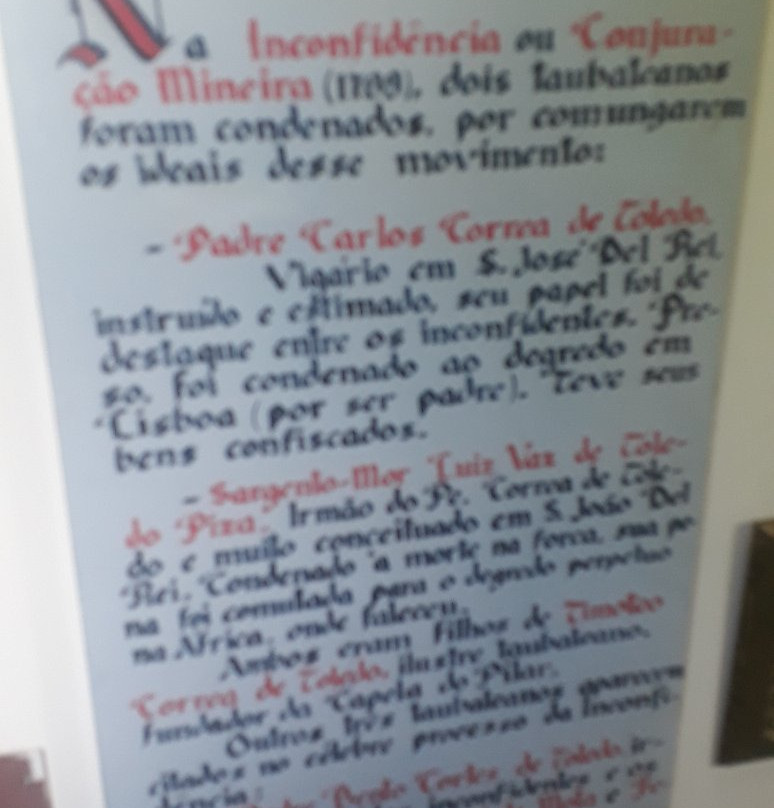 Na Inconfidência ou Conjura-
ção Mineira (1789), dois taubateanos
foram condenados, por comungarem
os ideais desse movimento:
- Padre Carlos Correa de Toledo.
Vigário em S. José Del Rei,
instruído e estimado, seu papel foi de
destaque entre os inconfidentes. Pre-
so, foi condenado ao degredo em
Lisboa (por ser padre). Teve seus
bens confiscados.
- Sargento-Mor Luiz Vaz de Tole-
do Piza. Irmão do Pe. Correa de Tole-
do e muito conceituado em S. João Del
Rei. Condenado à morte na forca, sua pe-
na foi comutada para o degredo perpétuo
na África, onde faleceu.
Ambos eram filhos de Timoteo
Correa de Toledo, ilustre taubateano,
fundador da Capela do Pilar.
Outros três taubateanos aparecem
citados no célebre processo da Inconfi-
dência:
Padre Bento Cortez de Toledo, ir-
inconfidentes e os